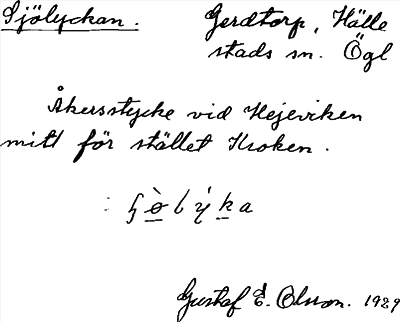 Sjölyckan. Gerdtorp, Hälle
stads sn. Ögl
Åkersstycke vid Hejeviken
mitt för stället Kroken.
Gustaf E. Olsson. 1929